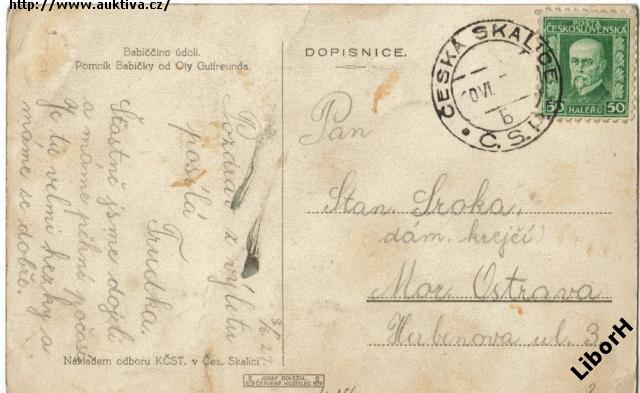 http://www.auktiva.cz/
Babiččino údolí.
Pomník Babičky od Oty Gutfreunda.
DOPISNICE.
Pozdrav z výletu
posílá
Trudka.
Šťastně jsme dojeli
a máme pěkné počasí
Je tu velmi hezky a
máme se dobře.
Nákladem odboru KČST. v Čes. Skalici
JOSEF DOLEŽAL
ČERVENÝ KOSTELEC
ČESKÁ SKALICE
b
Č.S.P.
POŠTA
ČESKOSLOVENSKÁ
50 HALÉŘŮ 50
Pan
Stan. Sroka,
dám. krejčí
Mor. Ostrava
Herbenova ul. 3
LiborH